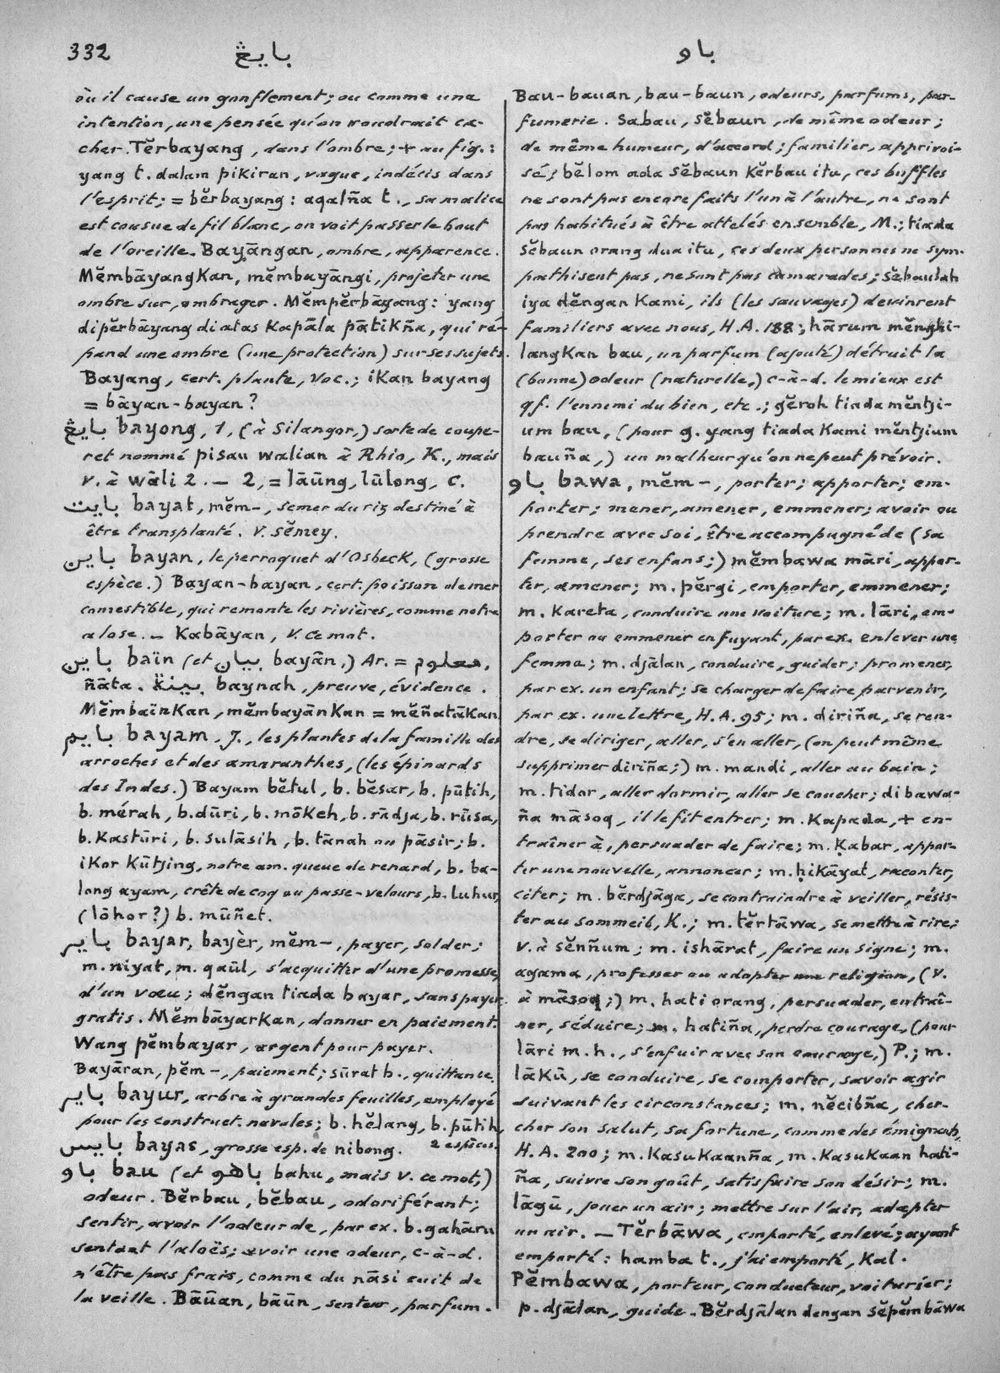 332
بايڠ
باو
où il cause un gonflement; ou comme une
intention, une pensée qu'on voudrait ca-
cher. Tĕrbayang, dans l'ombre; + au fig.:
yang t. dalam pikiran, vague, indécis dans
l'esprit; = bĕrbayang: aqalña t., sa malice
est cousue de fil blanc, on voit passer le bout
de l'oreille. Bayāngan, ombre, apparence.
MĕmbāyangKan, mĕmbayāngi, projeter une
ombre sur, ombrager. Mĕmpĕrbāyang: yang
dipĕrbāyang diatas Kapāla pātikña, qui ré-
pand une ombre (une protection) sur ses sujets.
Bayang, cert. plante, Voc.; iKan bayang
= bāyan-bayan?
بايڠ bayong, 1, (à Silangor,) sorte de coupe-
ret nommé pisau walian à Rhio, K., mais
V. à wāli 2. — 2, = lāūng, lūlong, C.
بايت bayat, mĕm-, semer du riz destiné à
être transplanté. V. sĕmey.
باين bayan, le perroquet d'Osbeck, (grosse
espèce.) Bayan-bayan, cert. poisson de mer
comestible, qui remonte les rivières, comme notre
alose. — Kabāyan, V. ce mot.
باين baïn (et بيان bayān,) Ar. = معلوم,
ñāta. بينة baynah, preuve, évidence.
MĕmbaïnKan, mĕmbayānKan = mĕñatāKan.
بايم bayam, J., les plantes de la famille des
arroches et des amaranthes, (les épinards
des Indes.) Bayam bĕtul, b. bĕsar, b. pūtih,
b. mérah, b. dūri, b. mōkeh, b. rādja, b. rūsa,
b. Kastūri, b. sulāsih, b. tānah ou pāsir; b.
iKor Kūtjing, notre am. queue de renard, b. ba-
long ayam, crête de coq ou passe-velours, b. luhur
(lōhor?) b. mūñet.
باير bayar, bayèr, mĕm-, payer, solder;
m. niyat, m. qaūl, s'acquitter d'une promesse,
d'un vœu; dĕngan tiada bayar, sans payer,
gratis. MĕmbāyarKan, donner en paiement.
Wang pĕmbayar, argent pour payer.
Bayāran, pĕm-, paiement; sūrat b., quittance.
باير bayur, arbre à grandes feuilles, employé
pour les construct. navales; b. hĕlang, b. pūtih,
2 espèces.
بايس bayas, grosse esp. de nibong.
باو bau (et باهو bahu, mais V. ce mot,)
odeur. Bĕrbau, bĕbau, odoriférant;
sentir, avoir l'odeur de, par ex. b. gahāru
sentant l'aloës; avoir une odeur, c-à-d.
n'être pas frais, comme du nāsi cuit de
la veille. Bāūan, bāūn, senteur, parfum.
Bau-bauan, bau-baun, odeurs, parfums, par-
fumerie. Sabau, sĕbaun, de même odeur;
de même humeur, d'accord; familier, apprivoi-
sé; bĕlom ada sĕbaun Kĕrbau itu, ces buffles
ne sont pas encore faits l'un à l'autre, ne sont
pas habitués à être attelés ensemble, M.; tiada
sĕbaun orang dua itu, ces deux personnes ne sym-
pathisent pas, ne sont pas camarades; sĕbaulah
iya dĕngan Kami, ils (les sauvages) devinrent
familiers avec nous, H.A. 188; hārum mĕnghi-
langKan bau, un parfum (ajouté) détruit la
(bonne) odeur (naturelle,) c-à-d. le mieux est
qf. l'ennemi du bien, etc.; gĕroh tiada mĕntji-
um bau, (pour g. yang tiada Kami mĕntjium
bauña,) un malheur qu'on ne peut prévoir.
باو bawa, mĕm-, porter; apporter; em-
porter; mener, amener, emmener; avoir ou
prendre avec soi, être accompagné de (sa
femme, ses enfans;) mĕmbawa māri, appor-
ter, amener; m. pĕrgi, emporter, emmener;
m. Kareta, conduire une voiture; m. lāri, em-
porter ou emmener en fuyant, par ex. enlever une
femme; m. djālan, conduire, guider; promener,
par ex. un enfant; se charger de faire parvenir,
par ex. une lettre, H.A. 95; m. diriña, se ren-
dre, se diriger, aller, s'en aller, (on peut même
supprimer diriña;) m. mandi, aller au bain;
m. tidor, aller dormir, aller se coucher; dibawa-
ña māsoq, il le fit entrer; m. Kapada, + en-
traîner à, persuader de faire; m. Kabar, appor-
ter une nouvelle, annoncer; m. ḥikāyat, raconter,
citer; m. bĕrdjāga, se contraindre à veiller, résis-
ter au sommeil, K.; m. tĕrtāwa, se mettre à rire;
V. à sĕnñum; m. ishārat, faire un signe; m.
agama, professer ou adopter une religion, (V.
à māsoq;) m. hati orang, persuader, entraî-
ner, séduire; m. hatiña, perdre courage, (pour
lāri m. h., s'enfuir avec son courage,) P.; m.
lāKū, se conduire, se comporter, savoir agir
suivant les circonstances; m. nĕcibña, cher-
cher son salut, sa fortune, comme des émigrants,
H.A. 200; m. KasuKaanña, m. KasuKaan hati-
ña, suivre son goût, satisfaire son désir; m.
lāgū, jouer un air; mettre sur l'air, adapter
un air. — Tĕrbāwa, emporté, enlevé; ayant
emporté: hamba t., j'ai emporté, Kal.
Pĕmbawa, porteur, conducteur, voiturier;
p. djālan, guide. Bĕrdjālan dengan sĕpĕmbāwa